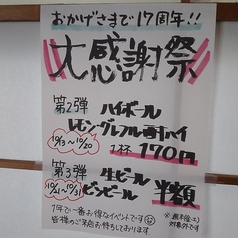 おかげさまで17周年!!
大感謝祭
第2弾 ハイボール
レモン・グレフル酎ハイ
10/13~10/20 1杯170円
第3弾 生ビール
10/21~10/31 ビンビール 半額
1年で一番お得なイベントです
皆様のご来店お待ちしております
※週末(金・土)
対象外です